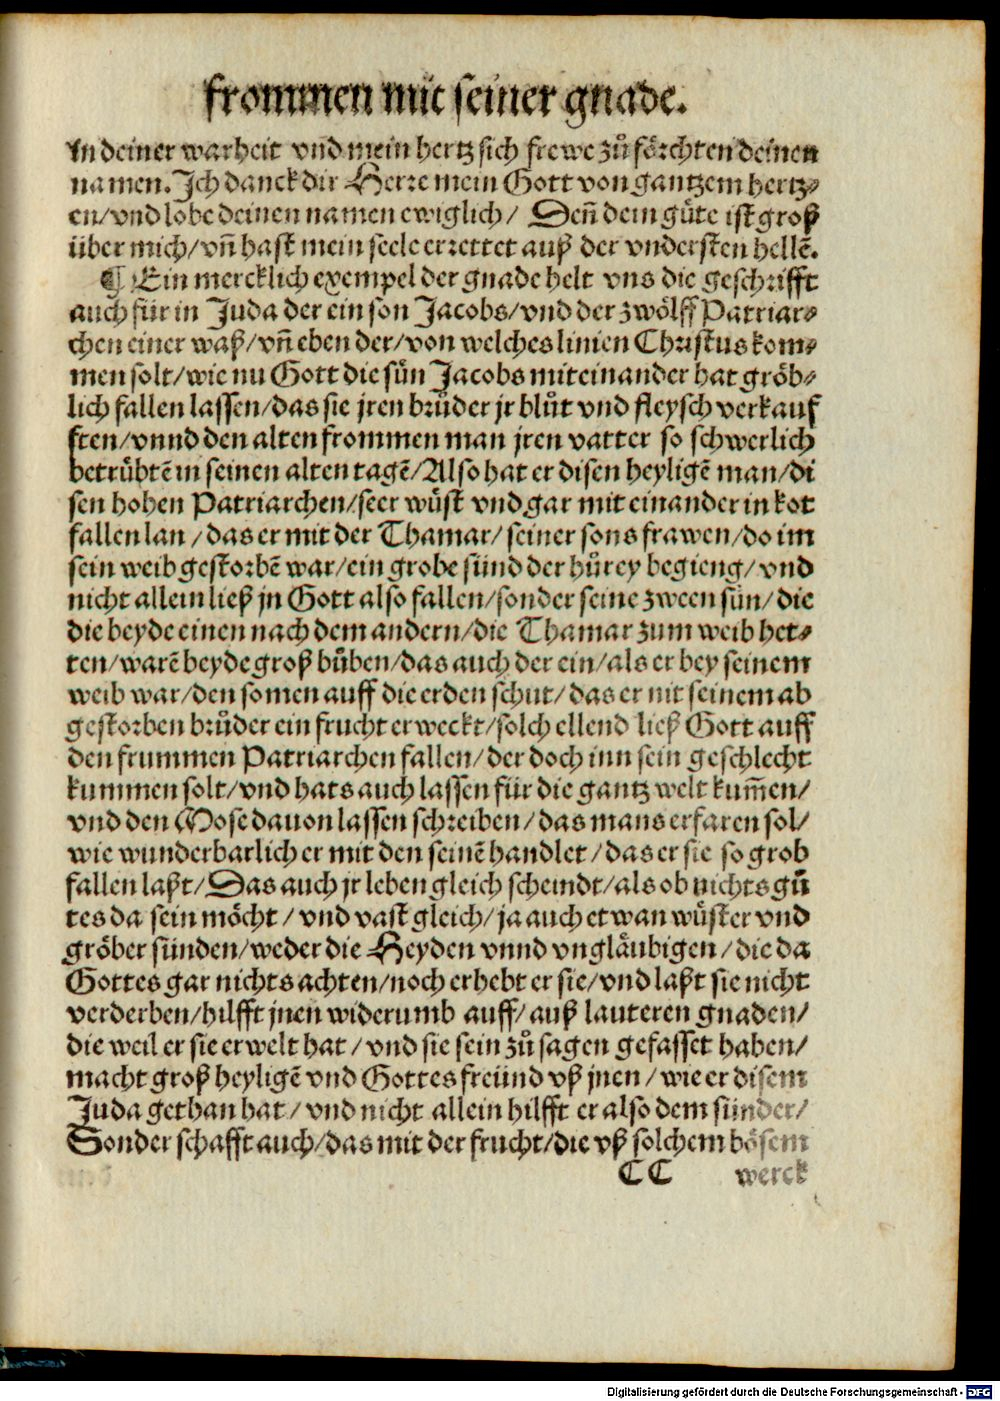 frommen mit seiner gnade.
In deiner warheit vnd mein hertz sich frewe zů förchten deinen
namen. Ich danck dir Herre mein Gott von gantzem hertz⸗
en/ vnd lobe deinen namen ewiglich/ Denn̄ dein gůte ist groß
über mich/ vn̄ hast mein seele errettet auß der vndersten hellē.
¶ Ein mercklich exempel der gnade helt vns die geschrifft
auch für in Juda der ein son Jacobs/ vnd der zwölff Patriar⸗
chen einer waß/ vn̄ eben der/ von welches linien Christus kom⸗
men solt/ wie nu Gott die sün Jacobs miteinander hat gröb⸗
lich fallen lassen/ das sie jren brůder jr blůt vnd fleysch verkauf
ften/ vnnd den alten frommen man jren vatter so schwerlich
betrůbtē in seinen alten tagē/ Also hat er disen heyligē man/ di
sen hohen Patriarchen/ seer wůst vnd gar mit einander in kot
fallen lan/ das er mit der Thamar/ seiner sons frawen/ do im
sein weib gestorbē war/ ein grobe sünd der hůrey begieng/ vnd
nicht allein ließ jn Gott also fallen/ sonder seine zween sün/ die
die beyde einen nach dem andern/ die Thamar zum weib het⸗
ten/ warē beyde groß bůben/ das auch der ein/ als er bey seinem
weib war/ den somen auff die erden schut/ das er nit seinem ab
gestorben brůder ein frucht erweckt/ solch ellend ließ Gott auff
den frummen Patriarchen fallen/ der doch inn sein geschlecht
kummen solt/ vnd hats auch lassen für die gantz welt kum̄en/
vnd den Mose dauon lassen schreiben/ das mans erfaren sol/
wie wunderbarlich er mit den seinē handlet/ das er sie so grob
fallen laßt/ Das auch jr leben gleich scheindt/ als ob nichts gů
tes da sein möcht/ vnd vast gleich/ ja auch etwan wůster vnd
gröber sünden/ weder die Heyden vnnd vngläubigen/ die da
Gottes gar nichts achten/ noch erhebt er sie/ vnd laßt sie nicht
verderben/ hilfft jnen widerumb auff/ auß lauteren gnaden/
die weil er sie erwelt hat/ vnd sie sein zůsagen gefasset haben/
macht groß heyligē vnd Gottes freünd vß jnen/ wie er disem
Juda gethan hat/ vnd nicht allein hilfft er also dem sünder/
Sonder schafft auch/ das mit der frucht/ die vß solchem bösem
CC werck
Digitalisierung gefördert durch die Deutsche Forschungsgemeinschaft - DFG